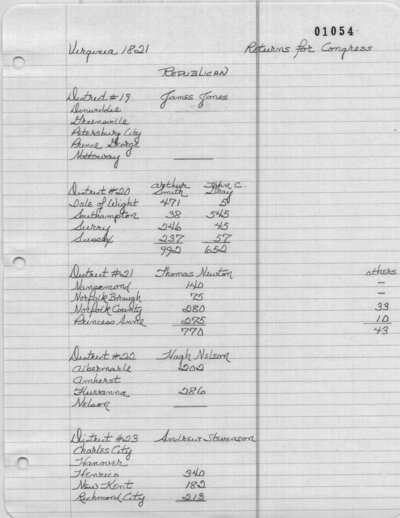 01054
Virginia 1821 Returns for Congress
REPUBLICAN
District #19 James Jones
Dinwiddie
Greensville
Petersburg City
Prince George
Nottoway
District #20 Arthur Smith John C. Gray
Isle of Wight 471 5
Southampton 38 545
Surry 246 45
Sussex 237 57
992 652
District #21 Thomas Newton others
Nansemond 140 —
Norfolk Borough 75 —
Norfolk County 280 33
Princess Anne 275 10
770 43
District #22 Hugh Nelson
Albermarle 202
Amherst
Fluvanna 286
Nelson
District #23 Andrew Stevenson
Charles City
Hanover
Henrico 340
New Kent 182
Richmond City 213